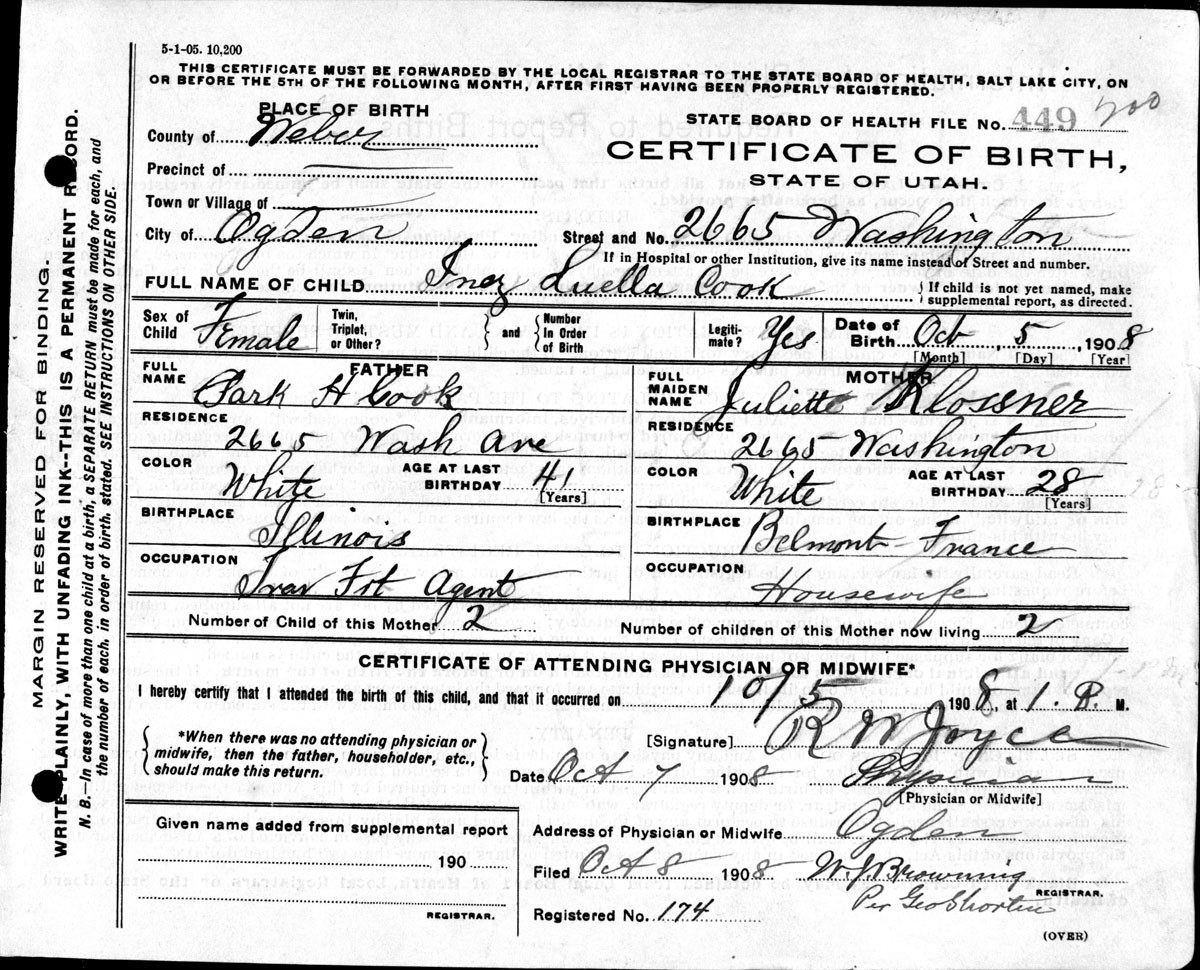 5-1-05. 10,200
THIS CERTIFICATE MUST BE FORWARDED BY THE LOCAL REGISTRAR TO THE STATE BOARD OF HEALTH, SALT LAKE CITY, ON
OR BEFORE THE 5TH OF THE FOLLOWING MONTH, AFTER FIRST HAVING BEEN PROPERLY REGISTERED.
PLACE OF BIRTH
STATE BOARD OF HEALTH FILE No. 449 700
County of Weber
CERTIFICATE OF BIRTH,
Precinct of
STATE OF UTAH.
Town or Village of
City of Ogden Street and No. 2665 Washington
If in Hospital or other Institution, give its name instead of Street and number.
FULL NAME OF CHILD Inez Luella Cook { If child is not yet named, make
supplemental report, as directed.
Sex of Child Female Twin, Triplet, or Other? } and { Number In Order of Birth Legitimate? Yes Date of Birth Oct, 5, 1908
[Month] [Day] [Year]
FATHER
FULL NAME Clark H Cook
RESIDENCE
2665 Wash Ave
COLOR White AGE AT LAST BIRTHDAY 41
[Years]
BIRTHPLACE Illinois
OCCUPATION
Trav Frt Agent
MOTHER
FULL MAIDEN NAME Juliette Klossner
RESIDENCE
2665 Washington
COLOR White AGE AT LAST BIRTHDAY 28
[Years]
BIRTHPLACE Belmont France
OCCUPATION
Housewife
Number of Child of this Mother 2 Number of children of this Mother now living 2
CERTIFICATE OF ATTENDING PHYSICIAN OR MIDWIFE*
I hereby certify that I attended the birth of this child, and that it occurred on 10/5 1908, at 1. P. M.
{ *When there was no attending physician or
midwife, then the father, householder, etc.,
should make this return. }
[Signature] R W Joyce
Date Oct 7 1908 Physician
[Physician or Midwife]
Given name added from supplemental report
190
REGISTRAR.
Address of Physician or Midwife Ogden
Filed Oct 8 1908 W. J. Browning
REGISTRAR.
Registered No. 174 Per Geo Shorten
(OVER)
MARGIN RESERVED FOR BINDING.
WRITE PLAINLY, WITH UNFADING INK--THIS IS A PERMANENT RECORD.
N. B.—In case of more than one child at a birth, a SEPARATE RETURN must be made for each, and
the number of each, in order of birth, stated. SEE INSTRUCTIONS ON OTHER SIDE.